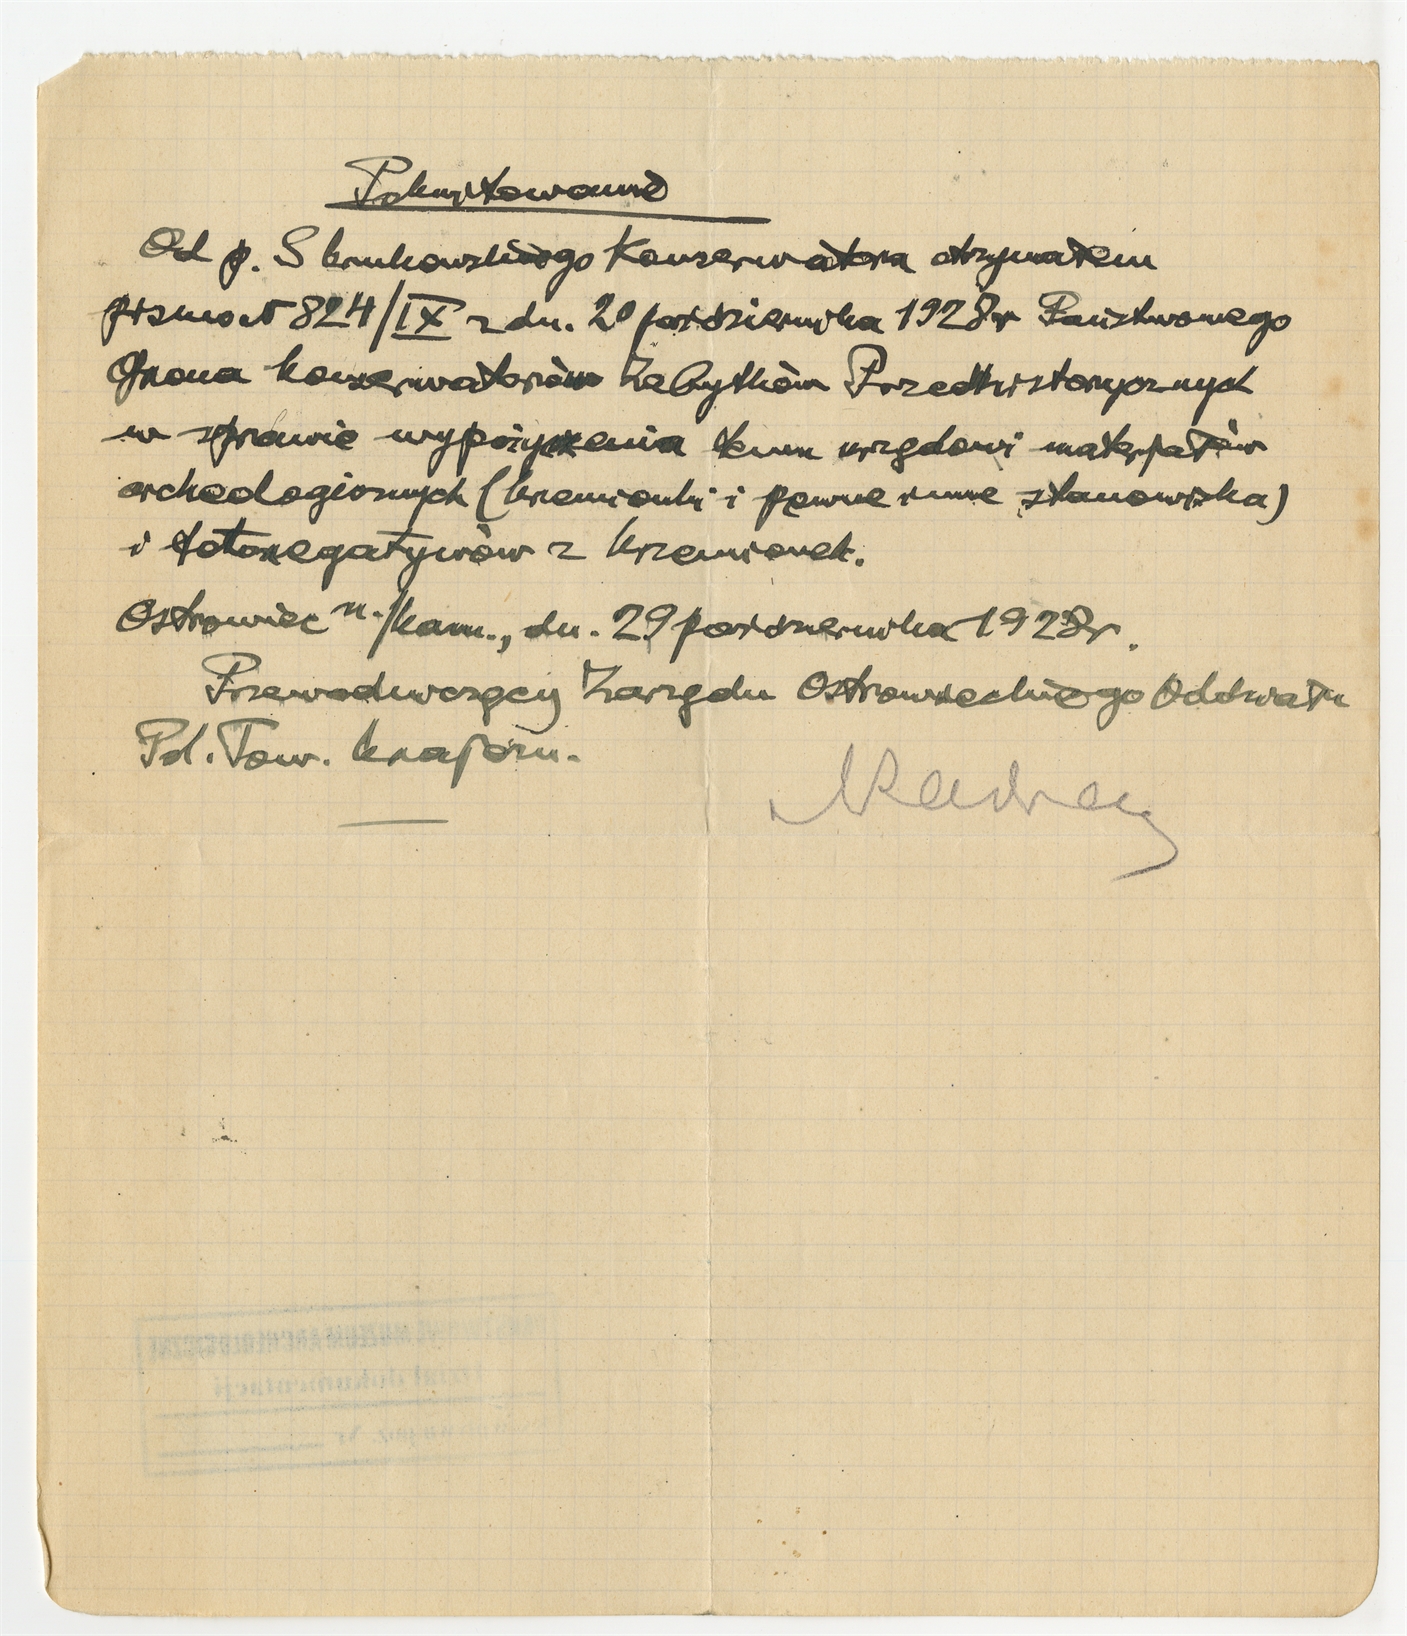 Pokwitowanie
Od p. S Krukowskiego Konserwatora otrzymałem
pismo № 824/IX z dn. 20 października 1928r Państwowego
Grona Konserwatorów Zabytków Przedhistorycznych
w sprawie wypożyczenia temu urzędowi materjałów
archeologicznych (Krzemionki i pewne inne stanowiska)
i fotonegatywów z Krzemionek.
Ostrowiec n./Kam., dn. 29 października 1928r.
Przewodniczący Zarządu Ostrowieckiego Oddziału
Pol. Tow. Krajozn.